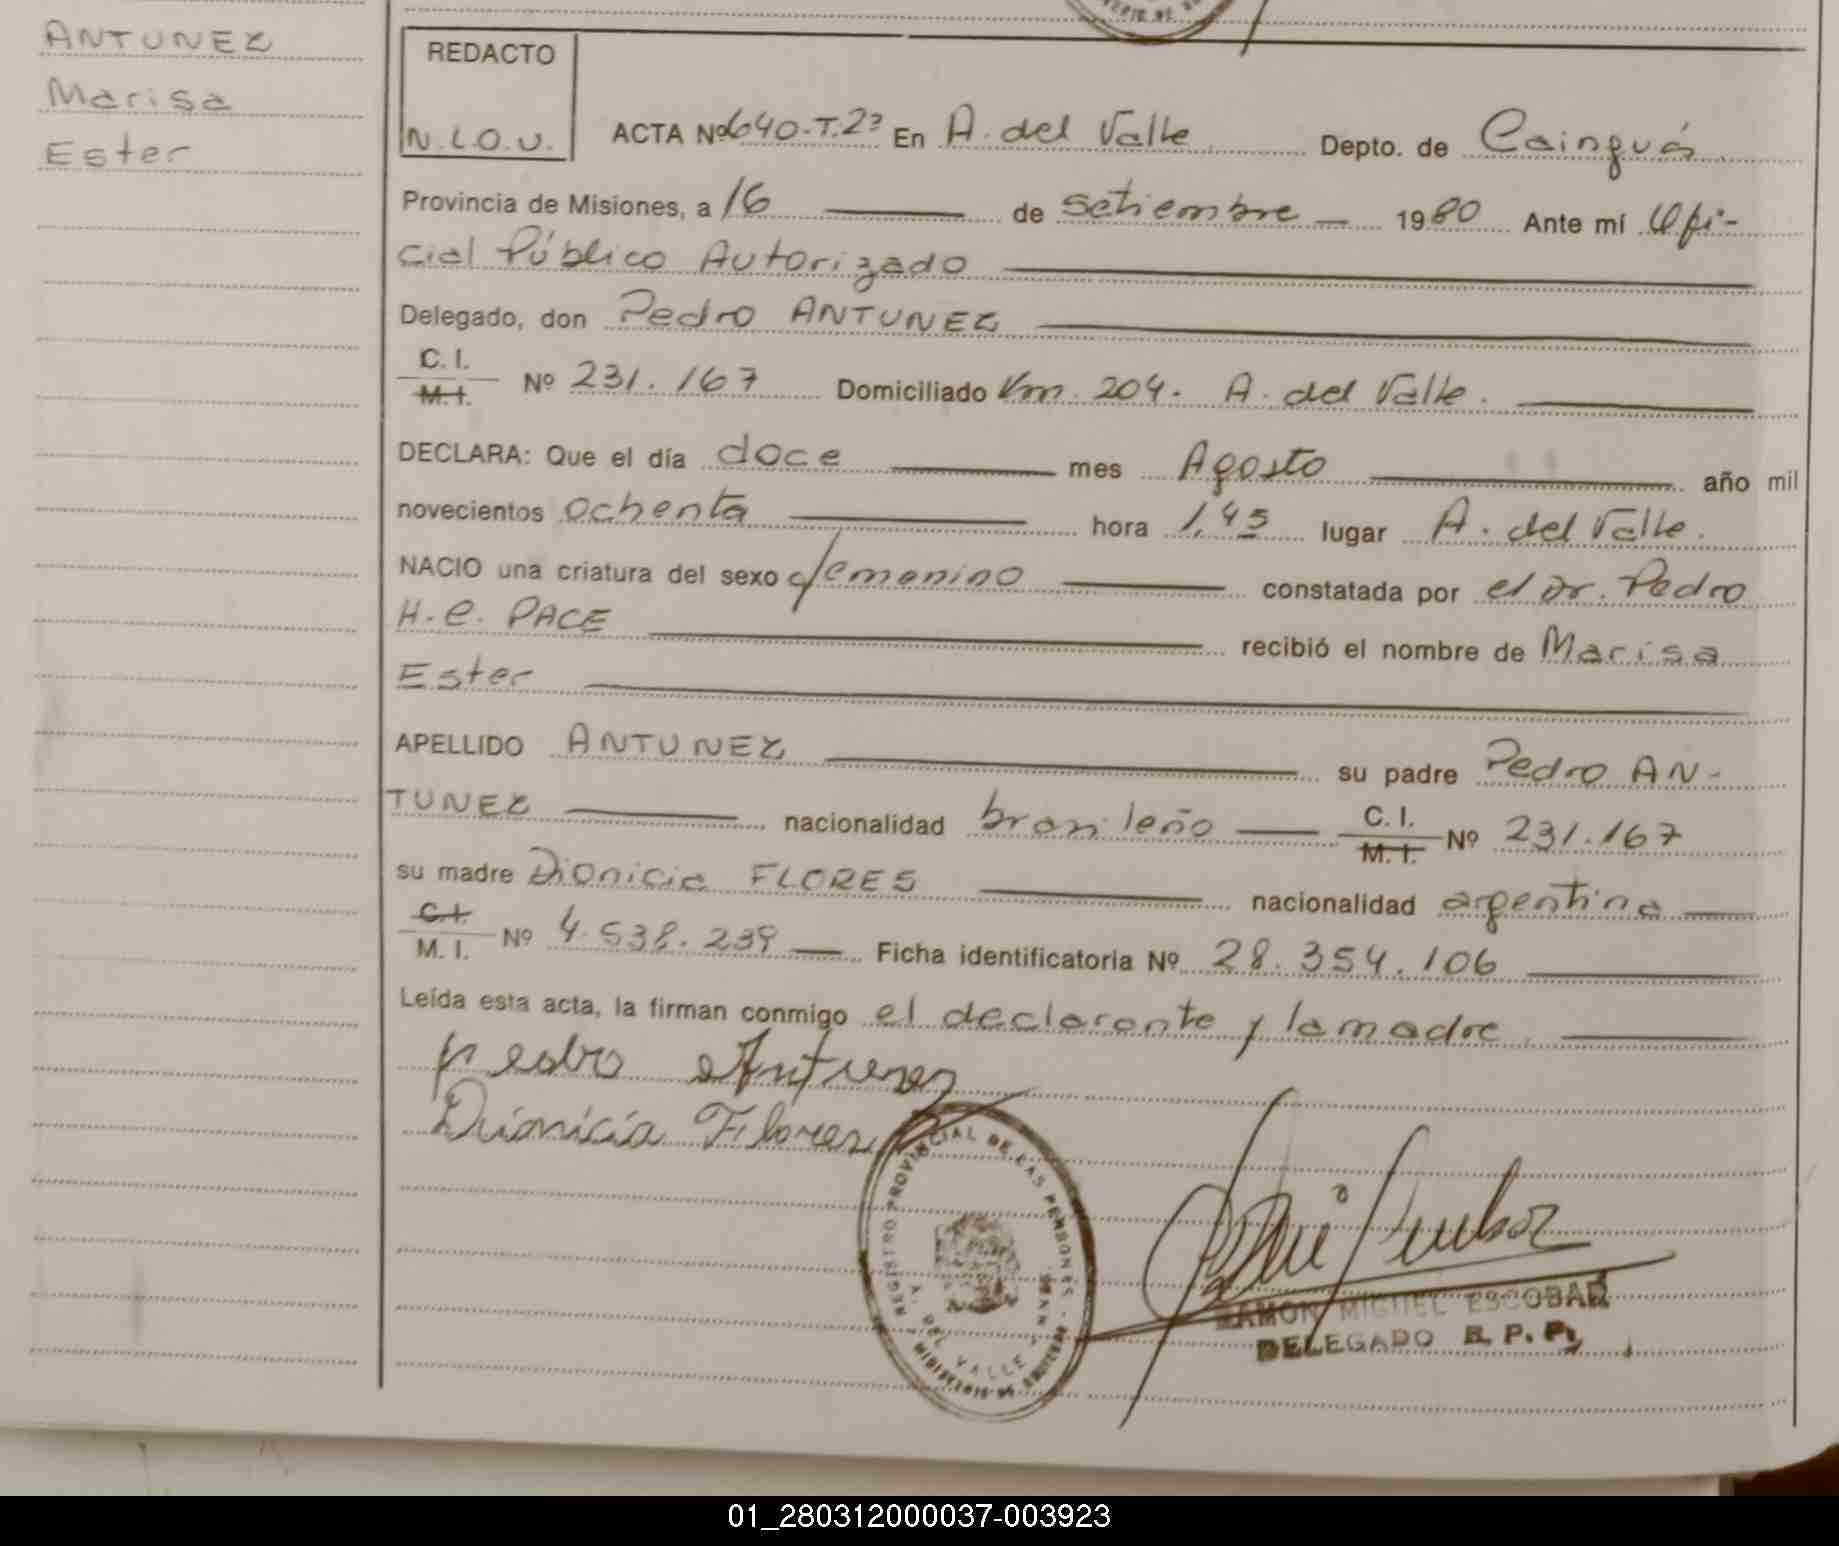 ANTUNEZ
Marisa
Ester
REDACTO
N.L.O.U.
ACTA Nº 640-T.2º En A. del Valle Depto. de Cainguás
Provincia de Misiones, a 16 de setiembre 1980 Ante mí Ofi-
cial Público Autorizado
Delegado, don Pedro ANTUNEZ
C. I.
M. I. Nº 231.167 Domiciliado Km. 204. A. del Valle.
DECLARA: Que el día doce mes Agosto año mil
novecientos ochenta hora 1,45 lugar A. del Valle.
NACIO una criatura del sexo femenino constatada por el Dr. Pedro
H.C. PACE recibió el nombre de Marisa
Ester
APELLIDO ANTUNEZ su padre Pedro AN-
TUNEZ nacionalidad brasileño C. I.
M. I. Nº 231.167
su madre Dionicia FLORES nacionalidad argentina
C. I.
M. I. Nº 4.538.239 Ficha identificatoria Nº 28.354.106
Leída esta acta, la firman conmigo el declarante y la madre.
Pedro Antunez
Dionicia Flores
REGISTRO PROVINCIAL DE LAS PERSONAS
A. DEL VALLE
RAMON MIGUEL ESCOBAR
DELEGADO R. P. P.
01_280312000037-003923